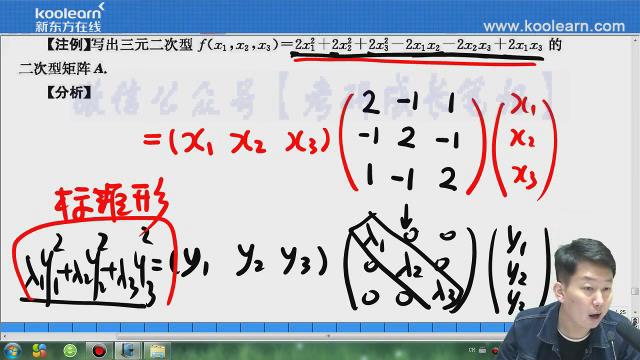 koolearn
新东方在线
www.koolearn.com
【注例】写出三元二次型 f(x₁,x₂,x₃)=2x₁²+2x₂²+2x₃²-2x₁x₂-2x₂x₃+2x₁x₃ 的
二次型矩阵 A.
【分析】
微信公众号【考研成长笔记】
=(x₁ x₂ x₃) (2 -1 1) (x₁)
(-1 2 -1) (x₂)
(1 -1 2) (x₃)
标准形
λ₁y₁²+λ₂y₂²+λ₃y₃² =(y₁ y₂ y₃) (λ₁ 0 0) (y₁)
(0 λ₂ 0) (y₂)
(0 0 λ₃) (y₃)
CH